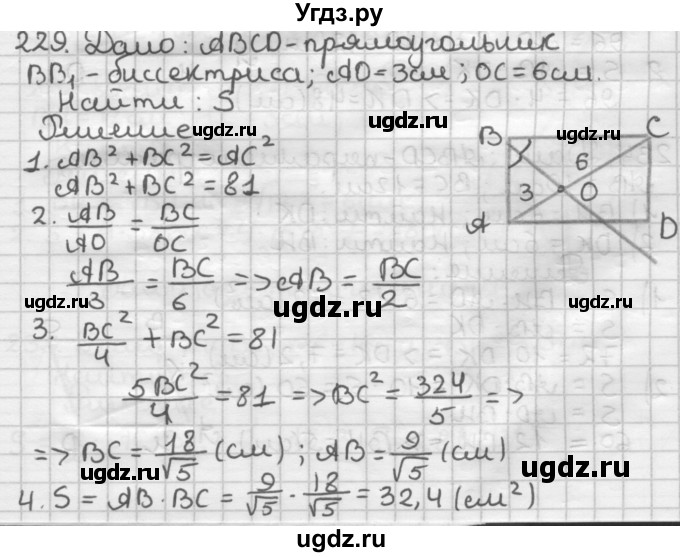 Угдз.ру
229. Дано: ABCD-прямоугольник
BB₁ - биссектриса; AO=3см; OC=6см.
Найти: S
Решение
1. AB² + BC² = AC²
AB² + BC² = 81
2. AB/AO = BC/OC
AB/3 = BC/6 => AB = BC/2
3. BC²/4 + BC² = 81
5BC²/4 = 81 => BC² = 324/5 =>
=> BC = 18/√5 (см); AB = 9/√5 (см)
4. S = AB · BC = 9/√5 · 18/√5 = 32,4 (см²)
B
C
6
3
O
A
D
ugdz.ru
ugdz.ru
ugdz.ru
ugdz.ru
ugdz.ru
ugdz.ru
ugdz.ru
ugdz.ru
ugdz.ru
ugdz.ru
ugdz.ru
ugdz.ru